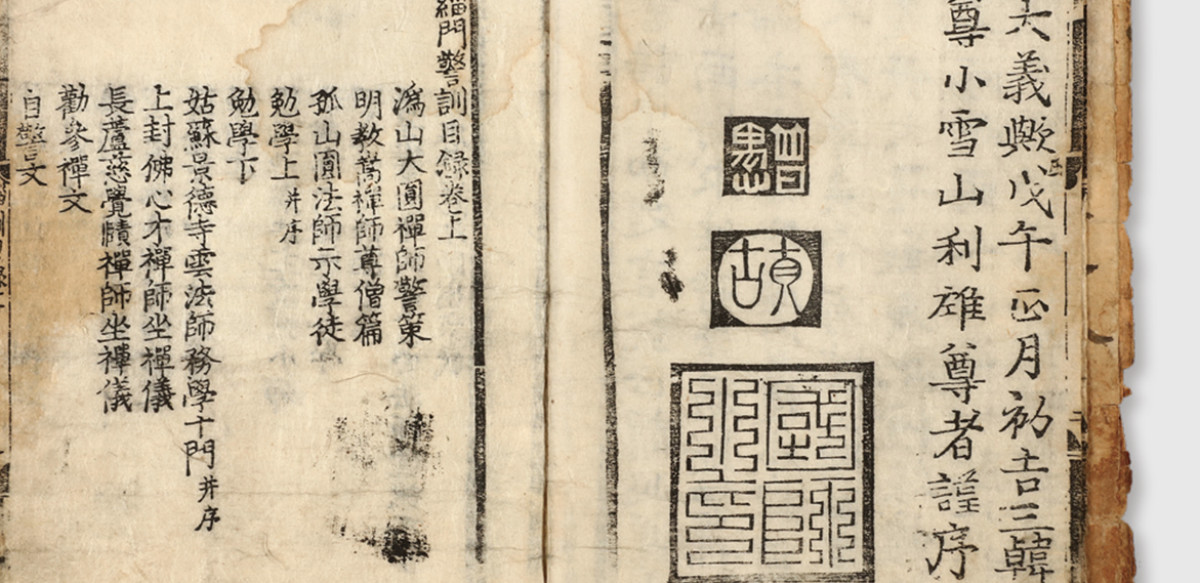 大義歟戊午正月初吉三韓
尊小雪山利雄尊者謹序
緇門警訓目錄卷上
溈山大圓禪師警策
明教嵩禪師尊僧篇
孤山圓法師示學徒
勉學上并序
勉學下
姑蘇景德寺雲法師務學十門并序
上封佛心才禪師坐禪儀
長蘆慈覺賾禪師坐禪儀
勸參禪文
自警文